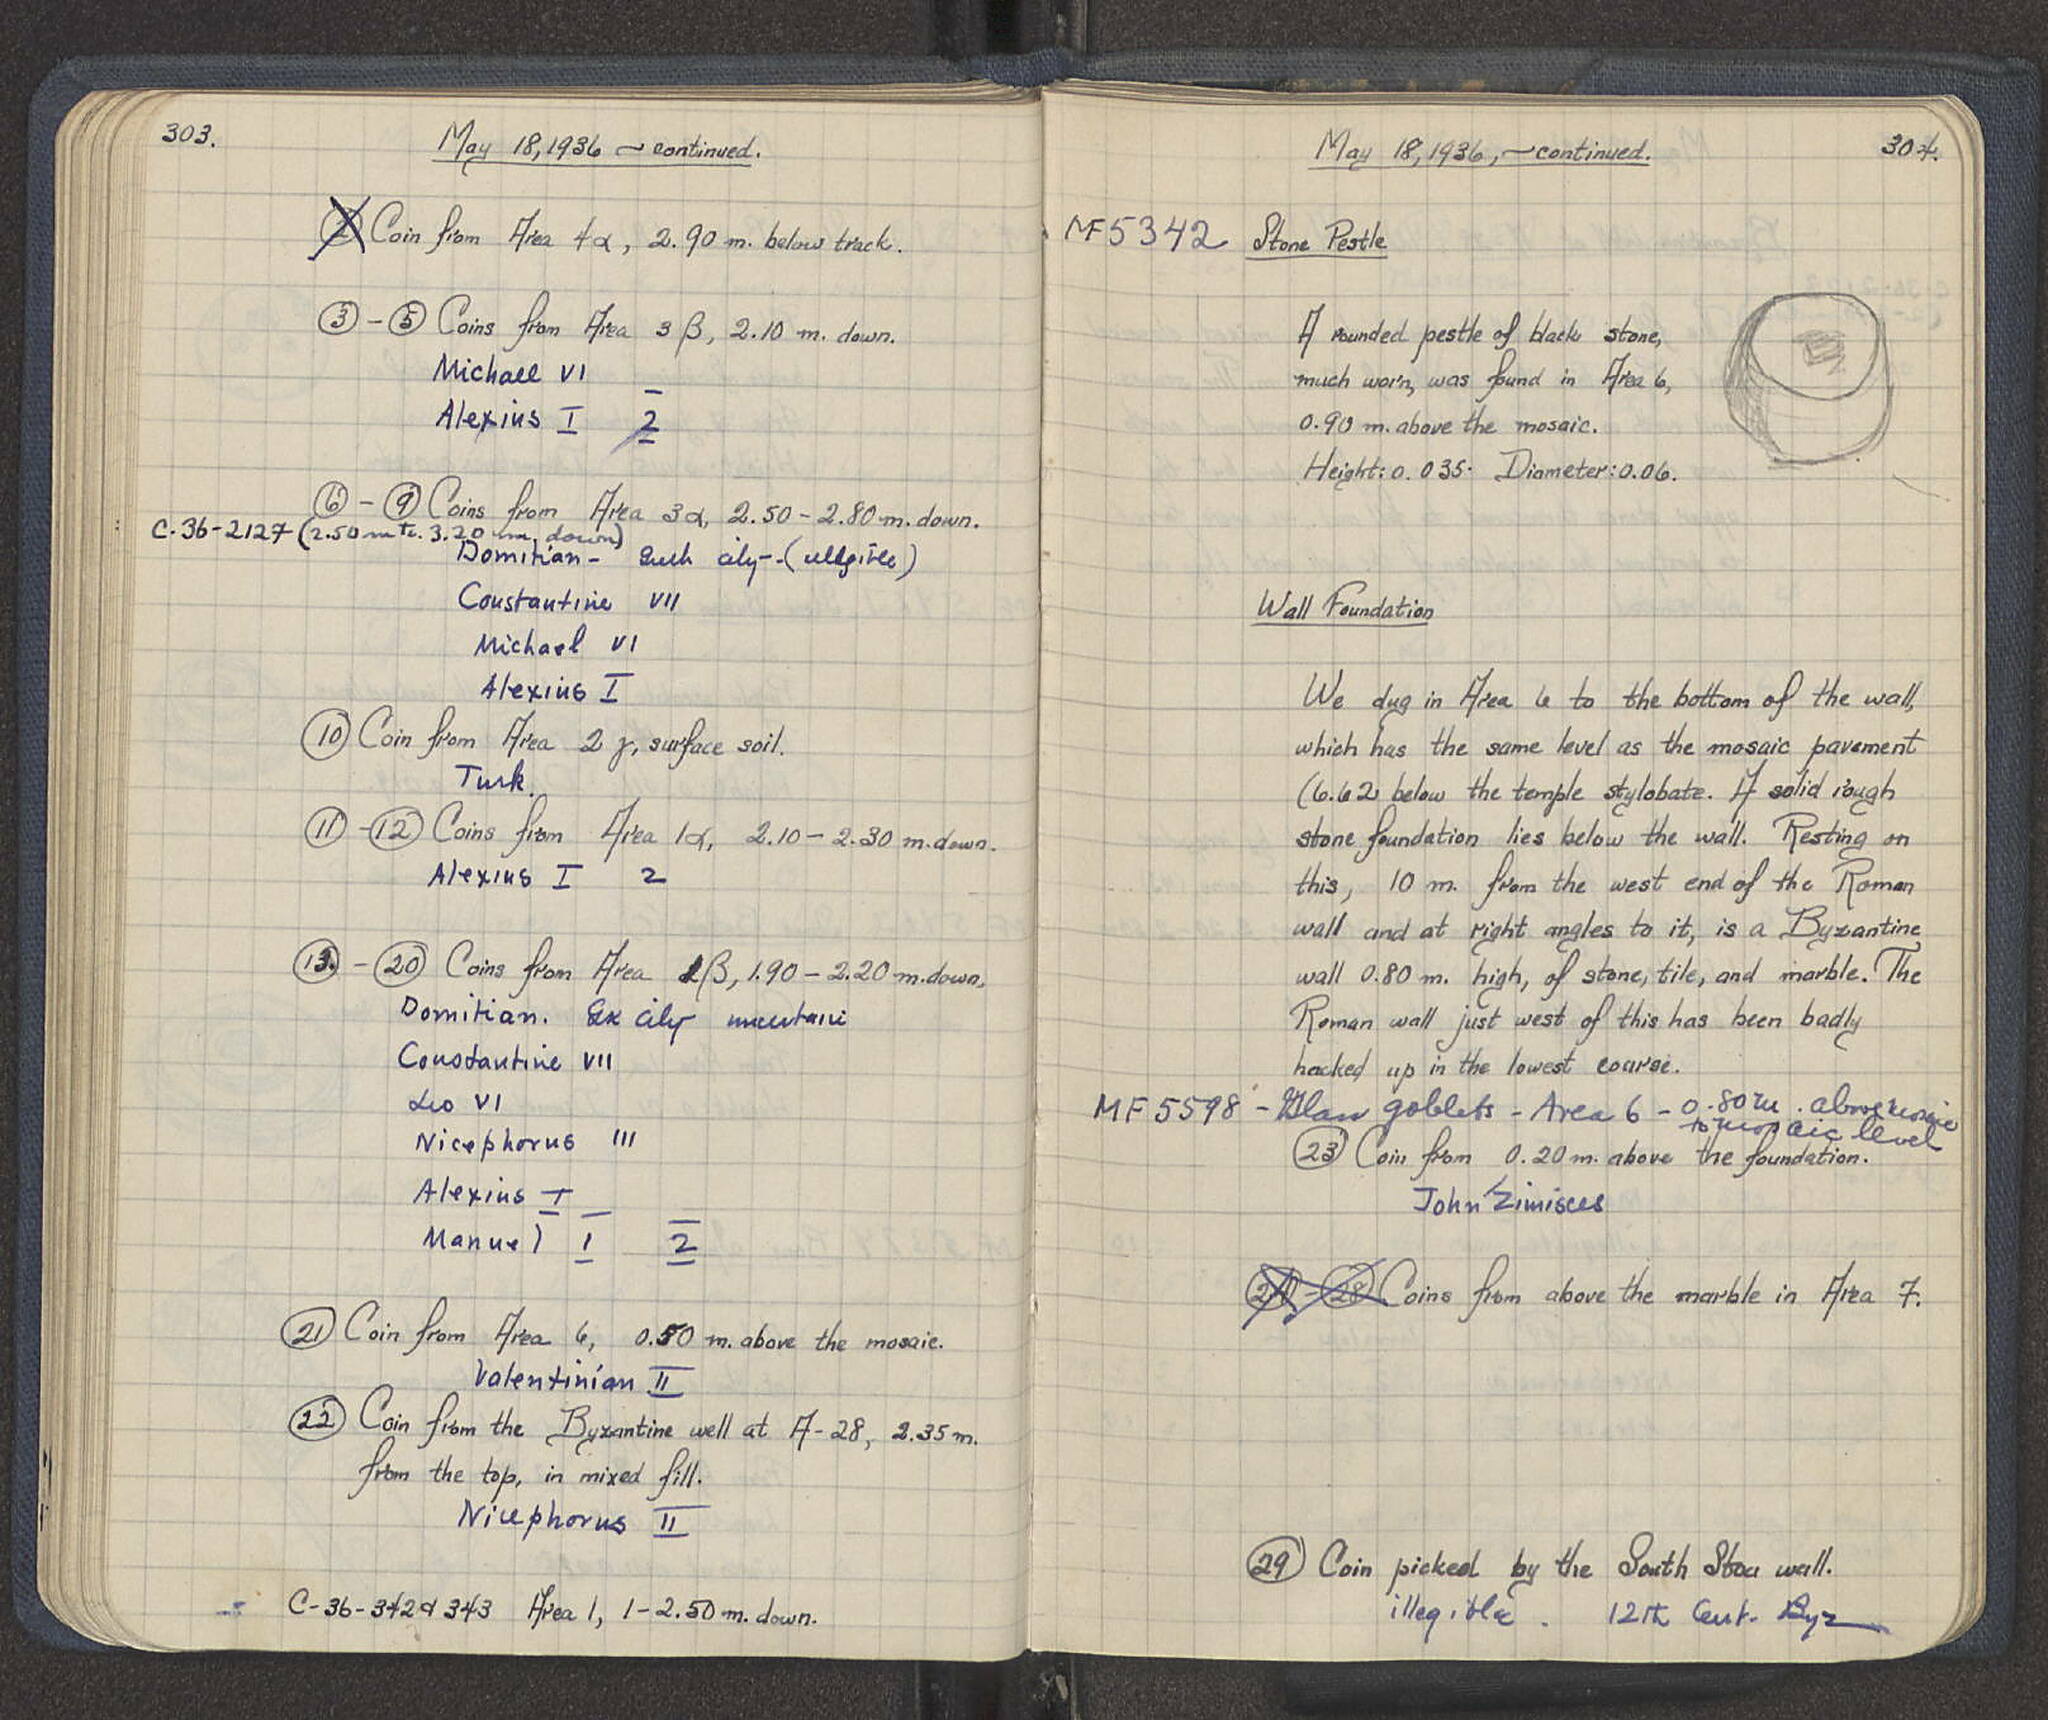 303.
May 18, 1936 — continued.
② Coin from Area 4α, 2.90 m. below track.
③ - ⑤ Coins from Area 3 β, 2.10 m. down.
Michael VI
Alexius I 2
⑥ - ⑨ Coins from Area 3α, 2.50 - 2.80 m. down.
C-36-2127 (2.50 m to 3.20 m. down)
Domitian - city - (illegible)
Constantine VII
Michael VI
Alexius I
⑩ Coin from Area 2 γ, surface soil.
Turk.
⑪ - ⑫ Coins from Area 1α, 2.10 - 2.30 m. down.
Alexius I 2
⑬ - ⑳ Coins from Area β, 1.90 - 2.20 m. down.
Domitian. city uncertain
Constantine VII
Leo VI
Nicephorus III
Alexius I
Manuel I 2
㉑ Coin from Area 6, 0.50 m. above the mosaic.
Valentinian II
㉒ Coin from the Byzantine well at A-28, 2.35 m.
from the top, in mixed fill.
Nicephorus II
C-36-342 & 343 Area 1, 1-2.50 m. down.
May 18, 1936, — continued.
304.
MF 5342 Stone Pestle
A rounded pestle of black stone,
much worn, was found in Area 6,
0.90 m. above the mosaic.
Height: 0.035. Diameter: 0.06.
Wall Foundation
We dug in Area 6 to the bottom of the wall,
which has the same level as the mosaic pavement
(6.62 below the temple stylobate. A solid rough
stone foundation lies below the wall. Resting on
this, 10 m. from the west end of the Roman
wall and at right angles to it, is a Byzantine
wall 0.80 m. high, of stone, tile, and marble. The
Roman wall just west of this has been badly
hacked up in the lowest coarse.
MF 5598 - Glass goblets - Area 6 - 0.80 m. above mosaic
to mosaic level
㉓ Coin from 0.20 m. above the foundation.
John Zimisces
㉔ - ㉘ Coins from above the marble in Area 7.
㉙ Coin picked by the South Stoa wall.
illegible. 12th Cent. Byz